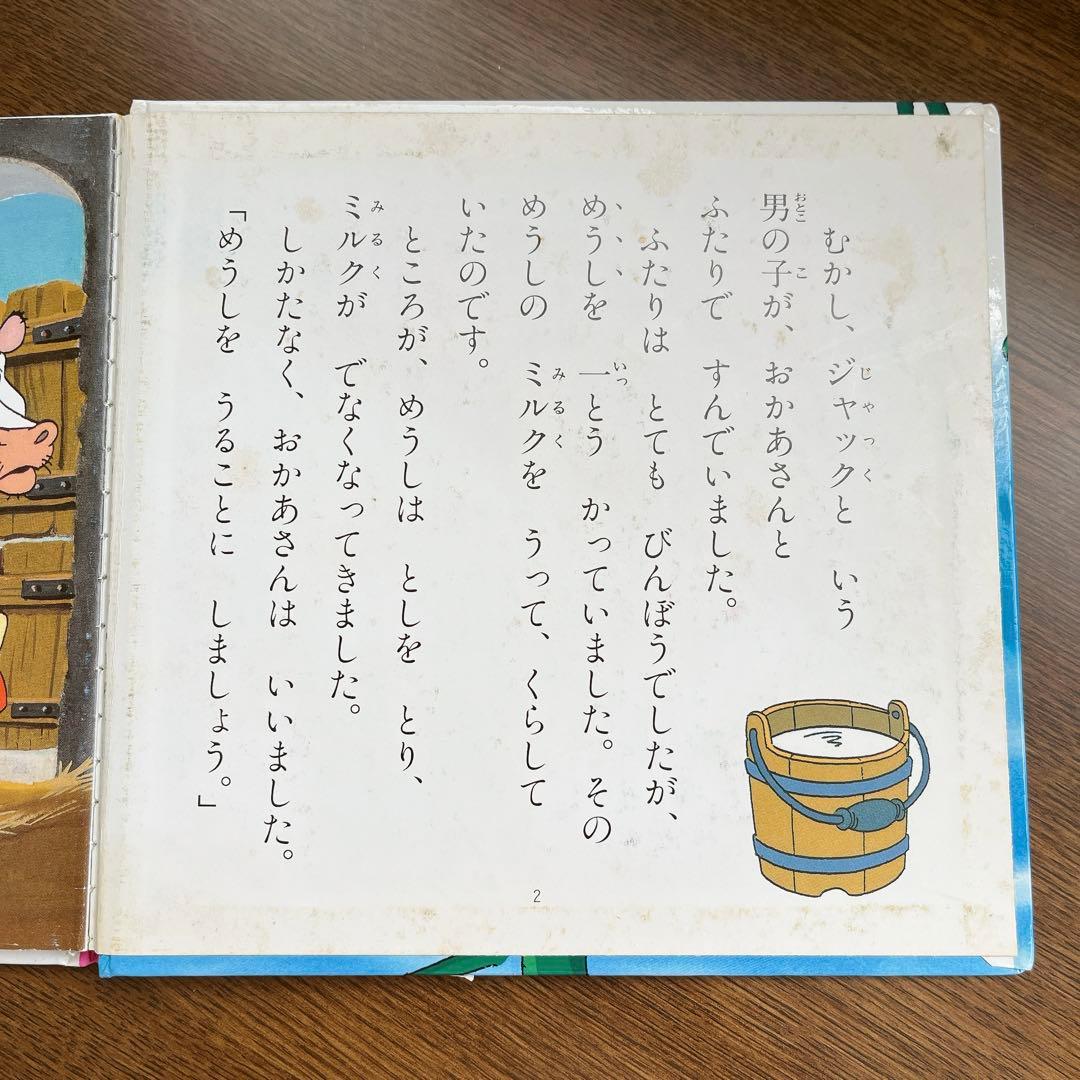 むかし、ジャックと　いう
男の子が、おかあさんと
ふたりで　すんでいました。
ふたりは　とても　びんぼうでしたが、
めうしを　一とう　かっていました。その
めうしの　ミルクを　うって、くらして
いたのです。
ところが、めうしは　としを　とり、
ミルクが　でなくなってきました。
しかたなく、おかあさんは　いいました。
「めうしを　うることに　しましょう。」
2